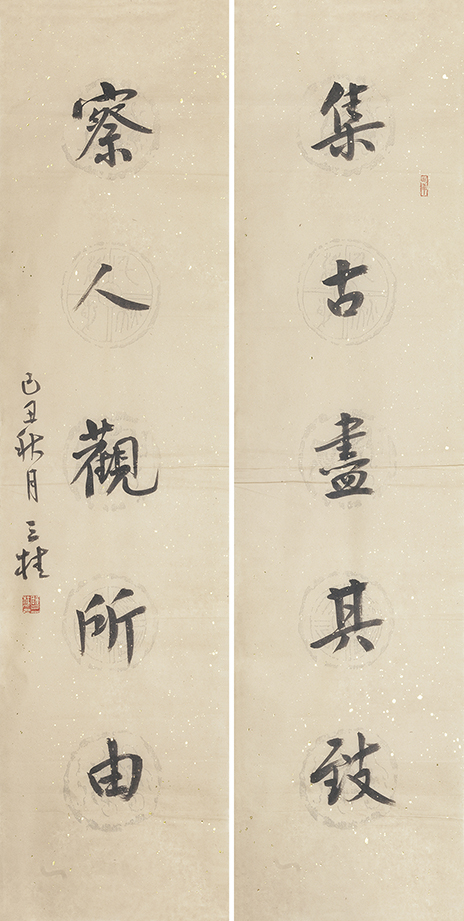 集古盡其致
察人觀所由
己丑秋月 三桂